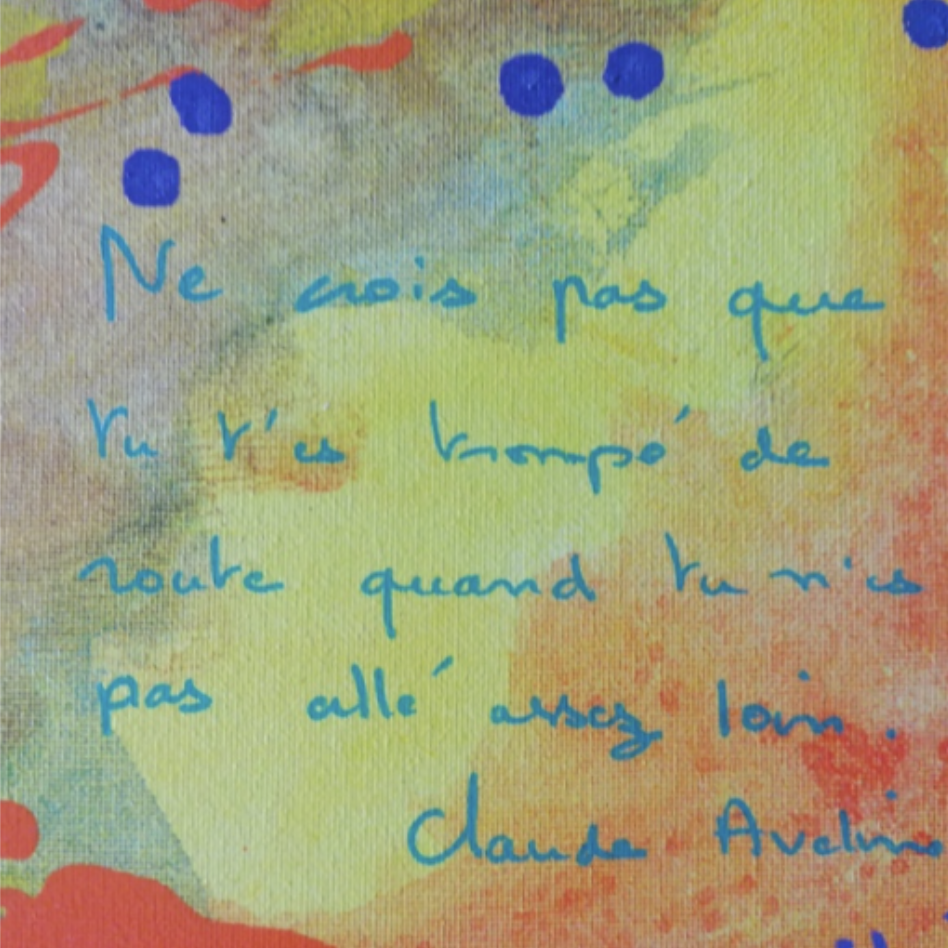 Ne crois pas que
tu t'es trompé de
route quand tu n'es
pas allé assez loin.
Claude Aveline